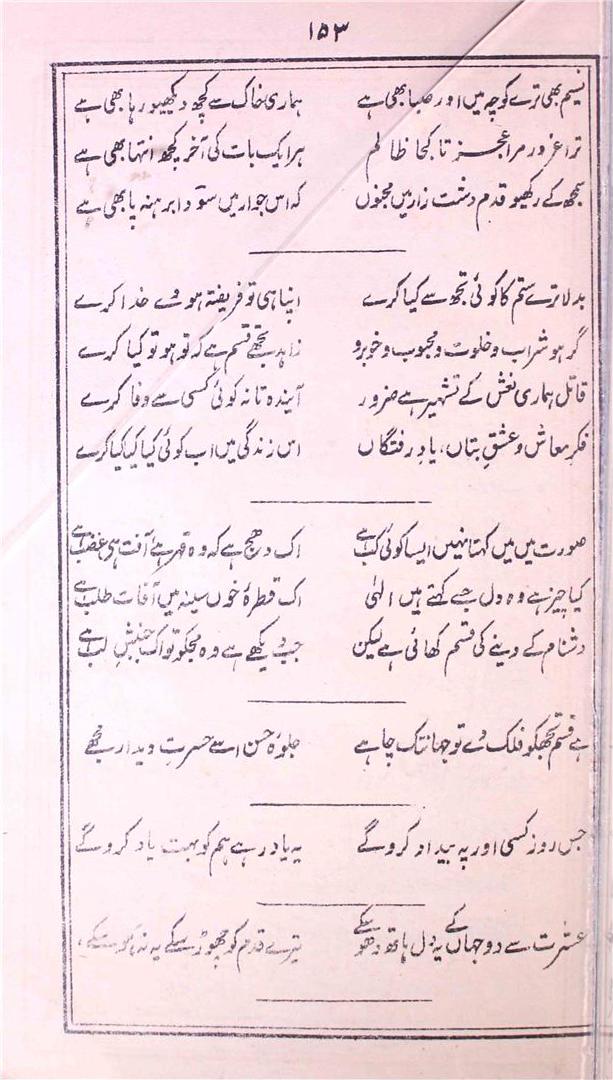 ۱۵۳
نسیم بھی ترے کوچہ میں اور صبا بھی ہے ہماری خاک سے کچھ دیکھیو رہا بھی ہے
ترا غرور مرا عجز تا کجا ظالم ہر ایک بات کی آخر کچھ انتہا بھی ہے
سمجھ کے رکھیو قدم دشت زار میں مجنوں کہ اس جوار میں سودا برہنہ پا بھی ہے
بدلا ترے ستم کا کوئی تجھ سے کیا کرے اپنا ہی تو فریفتہ ہووے خدا کرے
گر ہو شراب و خلوت و محبوب و خوبرو زاہد تجھے قسم ہے کہ تو ہو تو کیا کرے
قاتل ہماری نعش کے تشہیر ہے ضرور آیندہ تا نہ کوئی کسی سے وفا کرے
فکر معاش و عشق بتاں، یاد رفتگاں اس زندگی میں اب کوئی کیا کیا کیا کرے
صورت میں میں کہتا نہیں ایسا کوئی کب ہے اک دھج ہے کہ وہ قہر ہے آفت ہی غضب ہے
کیا چیز ہے وہ دل جسے کہتے ہیں الٰہی اک قطرۂ خوں سینہ میں آفات طلب ہے
دشنام کے دینے کی قسم کھائی ہے لیکن جب دیکھے ہے وہ مجکو تو اک جنبش لب ہے
ہے قسم تجھکو فلک دے تو جہانتک چاہے جلوۂ حسن اسے حسرت دیدار مجھے
جس روز کسی اور پہ بیداد کروگے یہ یاد رہے ہم کو بہت یاد کروگے
عشرت سے دو جہاں کے یہ دل ہاتھ دھو سکے تیرے قدم کو چھوڑ سکے یہ نہ ہو سکے